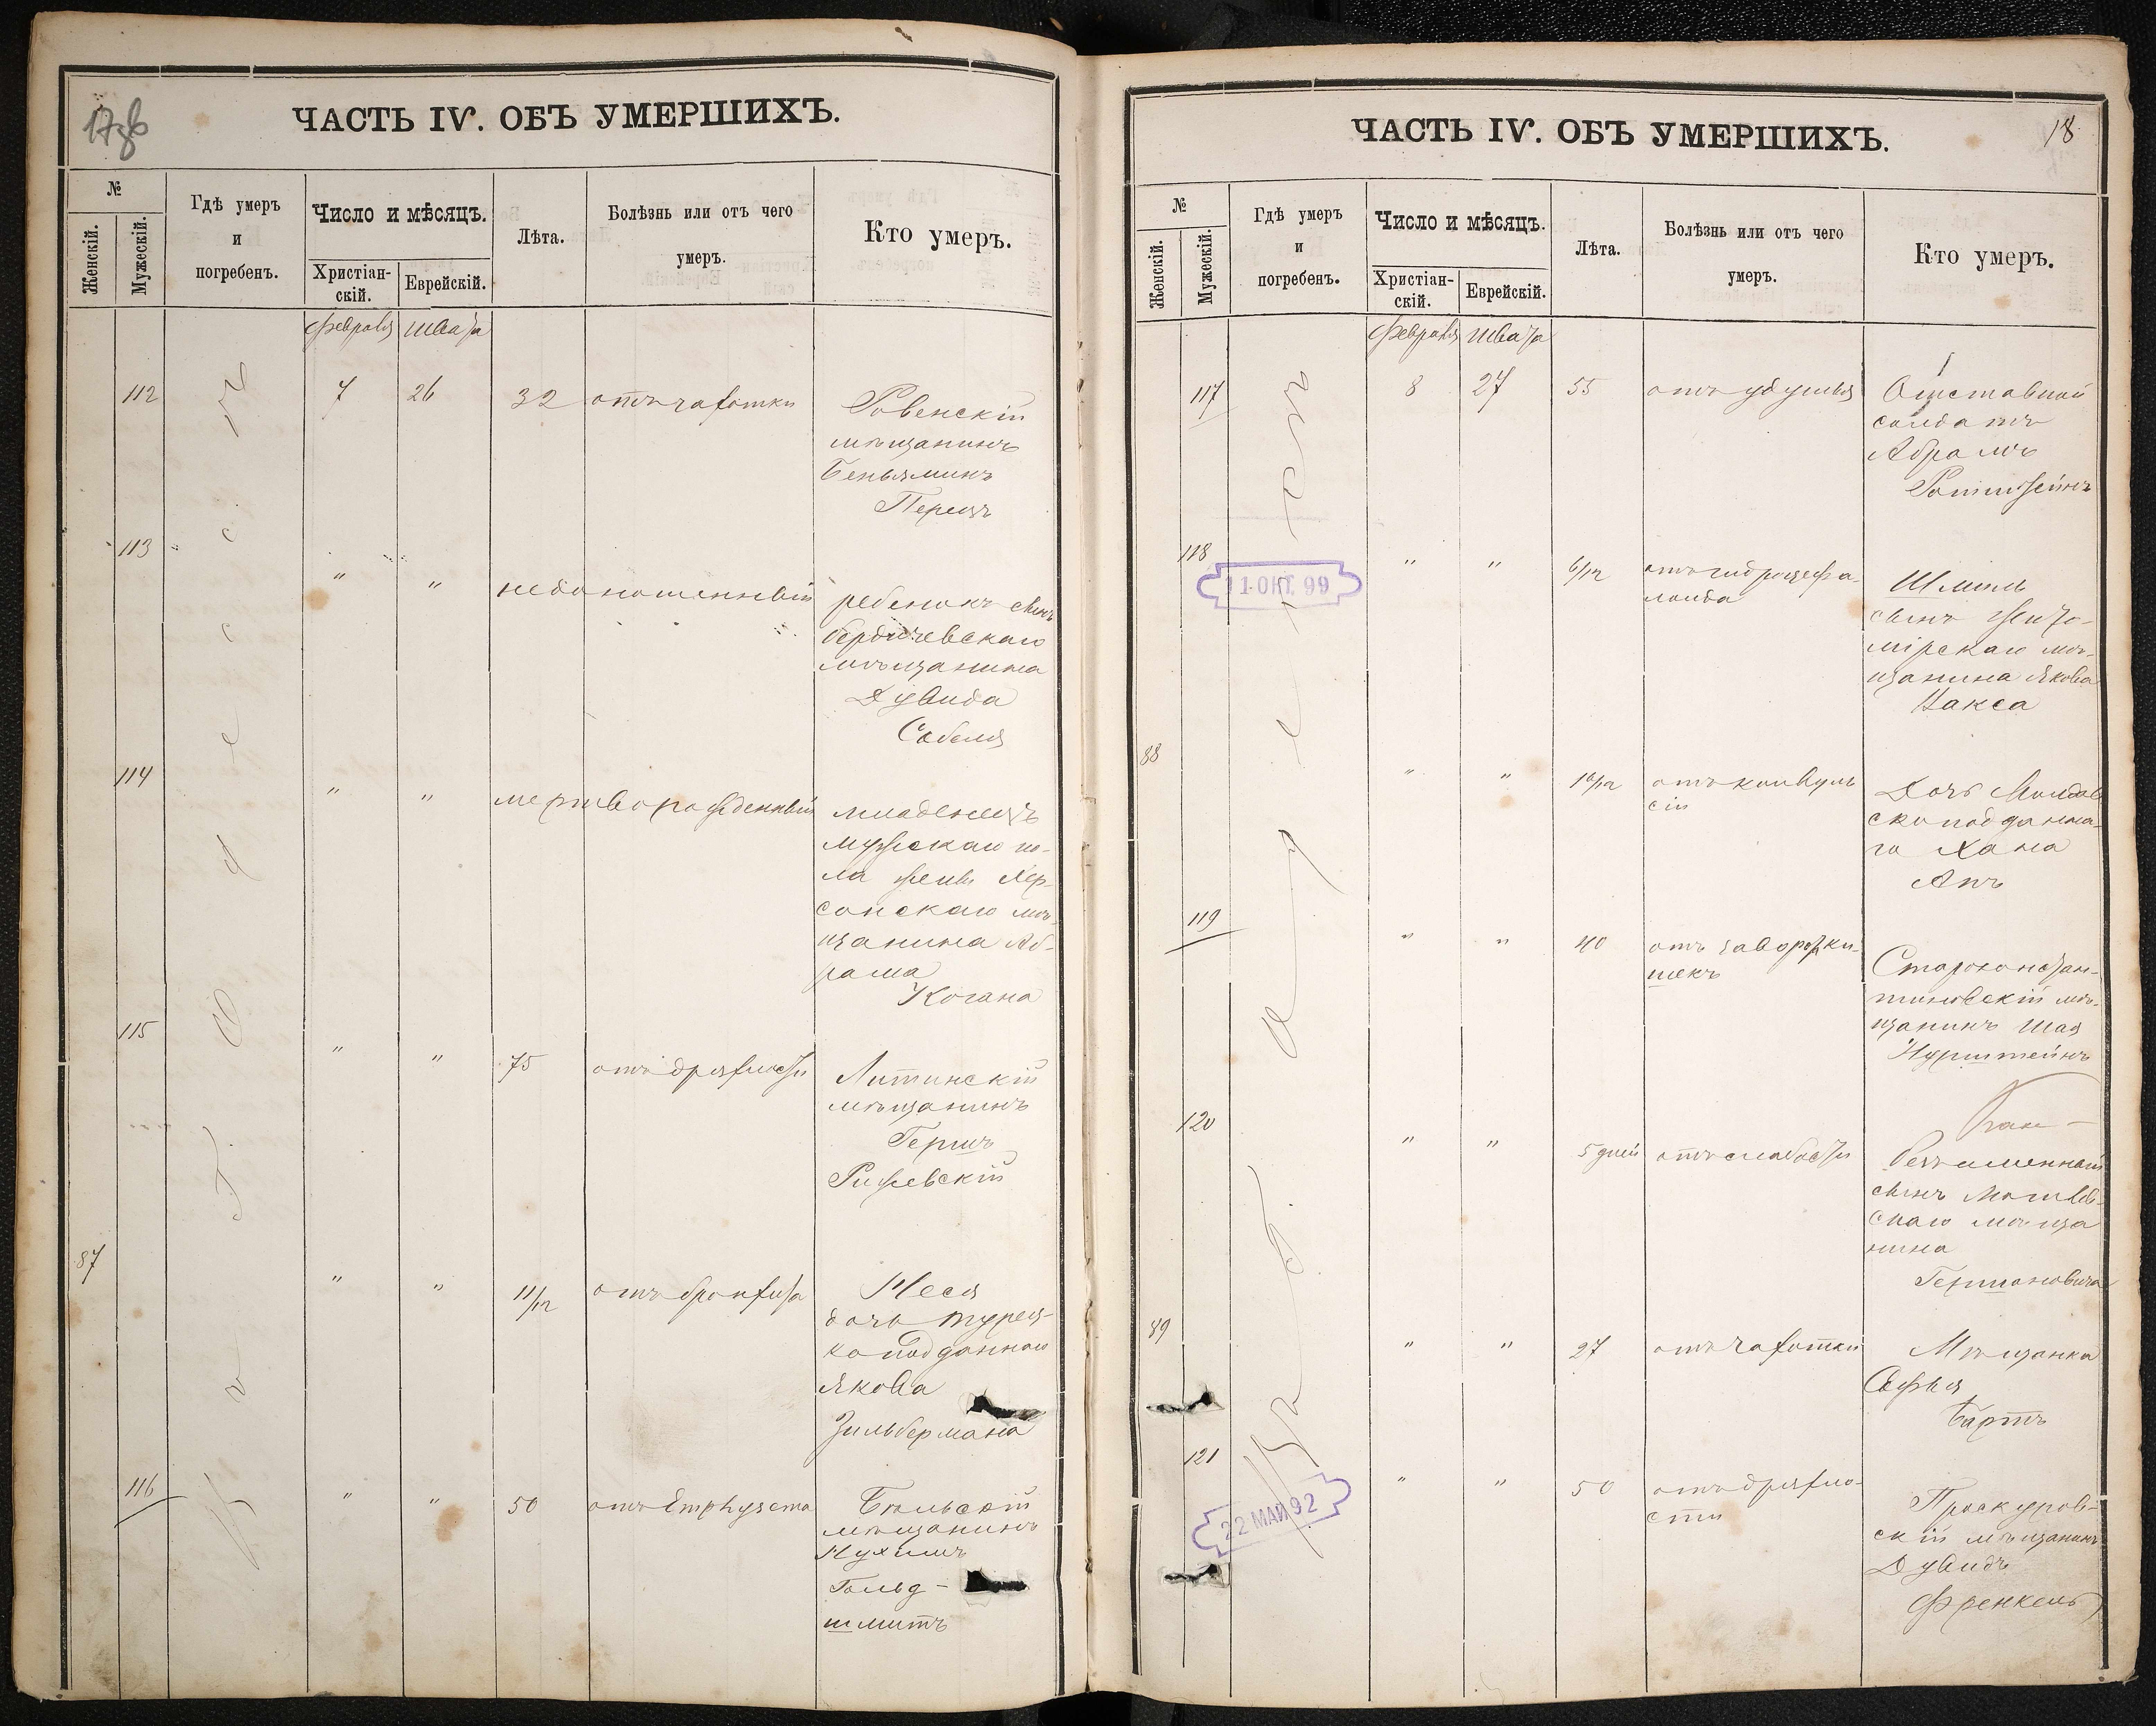 17 об
ЧАСТЬ IV. ОБЪ УМЕРШИХЪ.
№
Женскій.
Мужескій.
Гдѣ умеръ
и
погребенъ.
Число и мѣсяцъ.
Христіан-
скій.
Еврейскій.
Лѣта.
Болѣзнь или отъ чего
умеръ.
Кто умеръ.
Февраля Швата
112 7 26 32 отъ чахотки
Ровенскій
мѣщанинъ
Беньяминъ
Перецъ
113 " " недоношенный
ребенокъ сынъ
бердичевскаго
мѣщанина
Дувида
Собеля
114 " " мертворожденный
младенецъ
мужскаго по-
ла жены Хер-
сонскаго мѣ-
щанина Аб-
рама
Когана
115 " " 75 отъ дряхлости
Литинскій
мѣщанинъ
Гершъ
Рижевскій
87 " " 11/12 отъ бронхита
Неся
дочь турец-
коподданнаго
Якова
Зильбермана
116 " " 50 отъ Emphysema
Бѣльскій
мѣщанинъ
Нухимъ
Гольд-
шмитъ
18
ЧАСТЬ IV. ОБЪ УМЕРШИХЪ.
№
Женскій.
Мужескій.
Гдѣ умеръ
и
погребенъ.
Число и мѣсяцъ.
Христіан-
скій.
Еврейскій.
Лѣта.
Болѣзнь или отъ чего
умеръ.
Кто умеръ.
Февраля Швата
117 8 27 55 отъ удушья
Отставной
солдатъ
Абрамъ
118 " " 6/12 отъ гидроцефа-
лоида
11 ОКТ. 99
Шмиль
сынъ Жито-
мірскаго мѣ-
щанина Якова
Вакса
88 " " 10/12 отъ конвуль
сій
Дочь Молдав
скоподданна-
го Хана
Апъ
119 " " 40 отъ заворот. ки-
шекъ
Староконстан-
тиновскій мѣ-
щанинъ Шая
Нурштейнъ
120 " " 5 дней отъ слабости
Безъименный
сынъ Могилев
скаго мѣща
нина
Гершановича
89 " " 27 отъ чахотки
Мѣщанка
Софья
Бартъ
121 " " 50 отъ дряхло-
сти
22 МАЙ 92
Проскуров-
скій мѣщанинъ
Дувидъ
Френкель